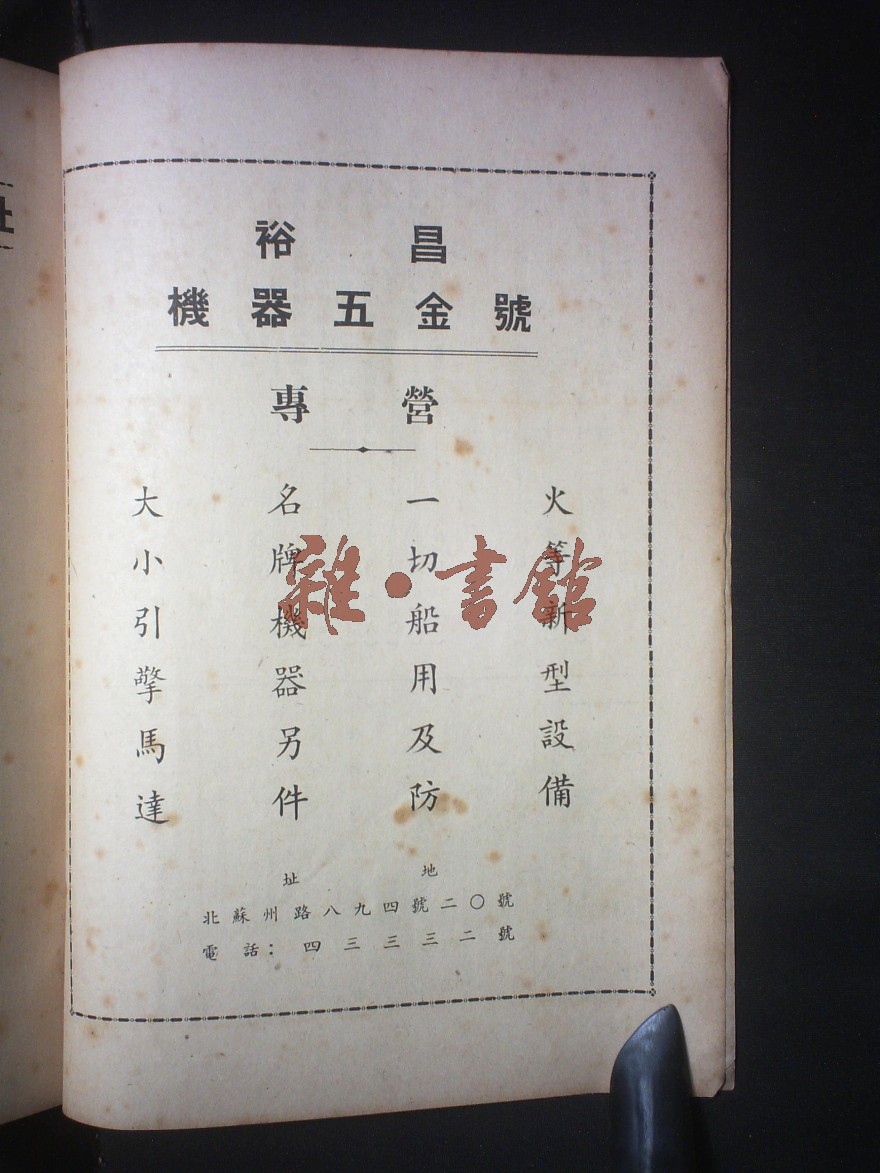 裕昌
機器五金號
專營
大小引擎馬達
名牌機器另件
一切船用及防
火等新型設備
地址
北蘇州路八九四號二〇號
電話：四三三三二號
雜·書館